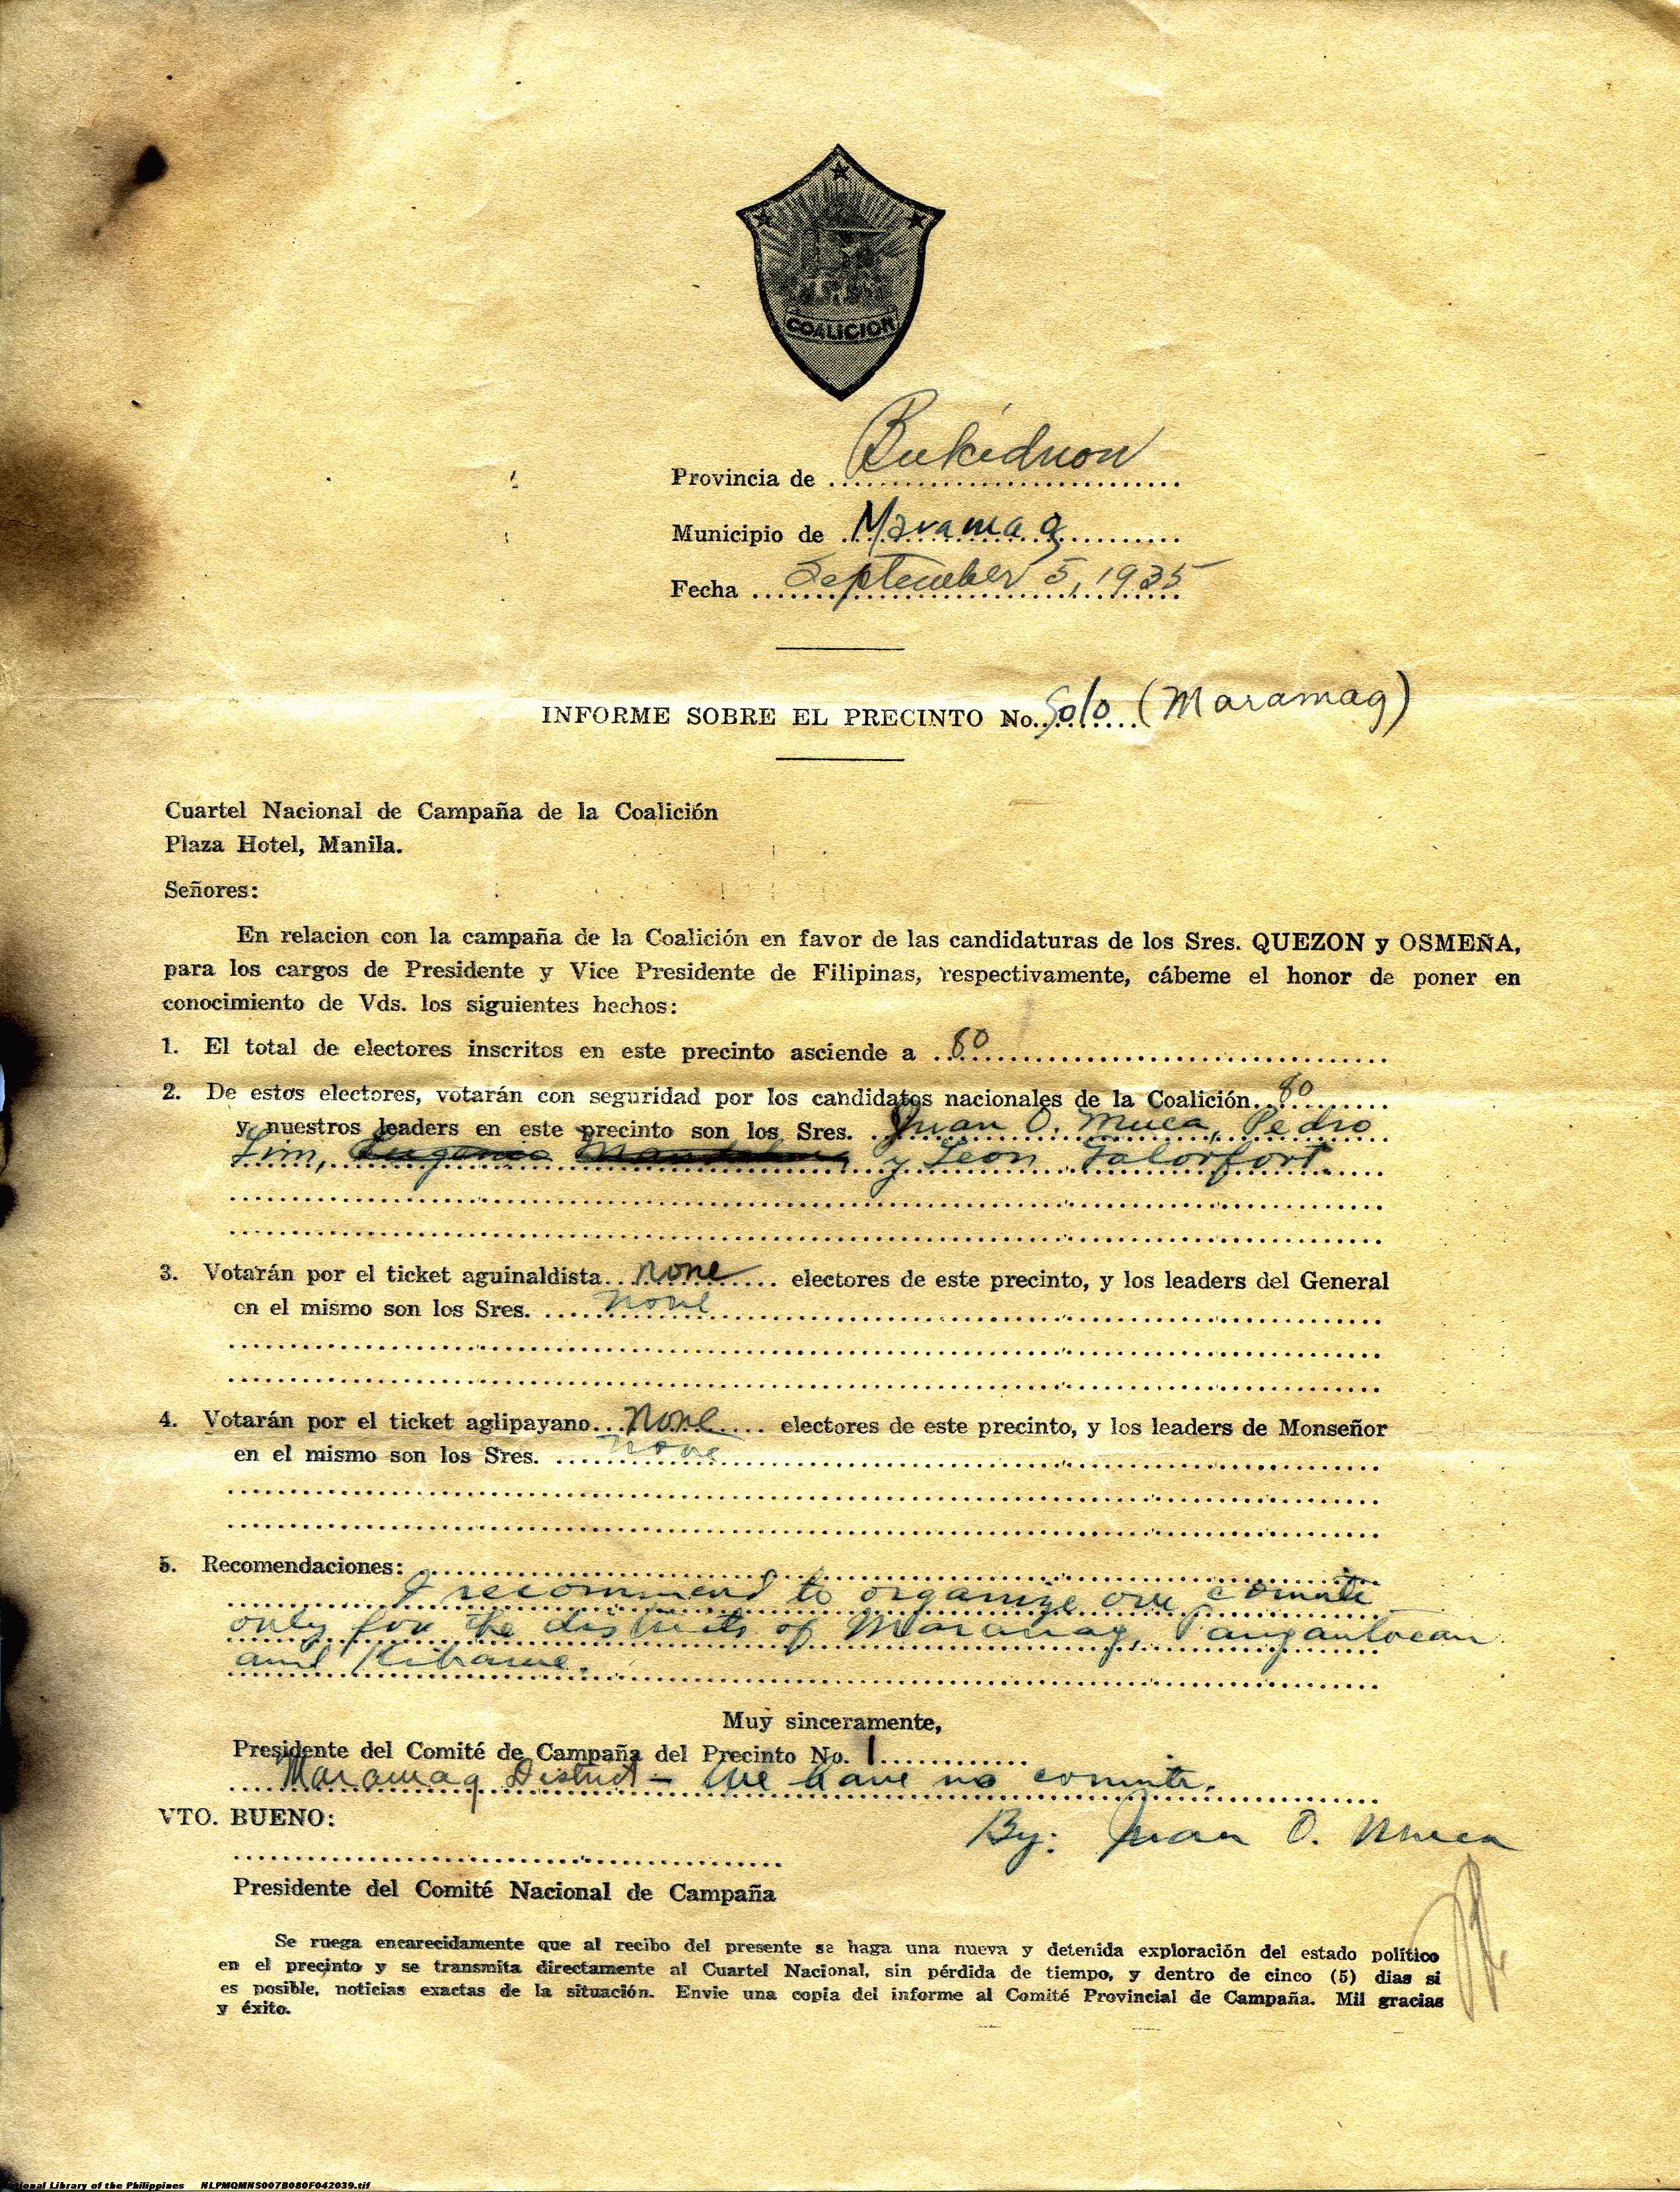 COALICION
Provincia de Bukidnon
Municipio de Maramag
Fecha September 5, 1935
INFORME SOBRE EL PRECINTO No. Solo (Maramag)
Cuartel Nacional de Campaña de la Coalición
Plaza Hotel, Manila.
Señores:
En relacion con la campaña de la Coalición en favor de las candidaturas de los Sres. QUEZON y OSMEÑA,
para los cargos de Presidente y Vice Presidente de Filipinas, respectivamente, cábeme el honor de poner en
conocimiento de Vds. los siguientes hechos:
1. El total de electores inscritos en este precinto asciende a 80
2. De estos electores, votarán con seguridad por los candidatos nacionales de la Coalición 80
y nuestros leaders en este precinto son los Sres. Juan O. Muca, Pedro
Lim, y Leon
3. Votarán por el ticket aguinaldista none electores de este precinto, y los leaders del General
en el mismo son los Sres. none
4. Votarán por el ticket aglipayano none electores de este precinto, y los leaders de Monseñor
en el mismo son los Sres. none
5. Recomendaciones:
I recommend to organize one comite
only for the districts of Maramag, Pangantocan
and Kibawe.
Muy sinceramente,
Presidente del Comité de Campaña del Precinto No. 1
Maramag District - We have no comite.
VTO. BUENO:
By: Juan O. Muca
Presidente del Comité Nacional de Campaña
Se ruega encarecidamente que al recibo del presente se haga una nueva y detenida exploración del estado político
en el precinto y se transmita directamente al Cuartel Nacional, sin pérdida de tiempo, y dentro de cinco (5) dias si
es posible, noticias exactas de la situación. Envie una copia del informe al Comité Provincial de Campaña. Mil gracias
y éxito.
Library of the Philippines NLPMQMNS007B080F042039.tif